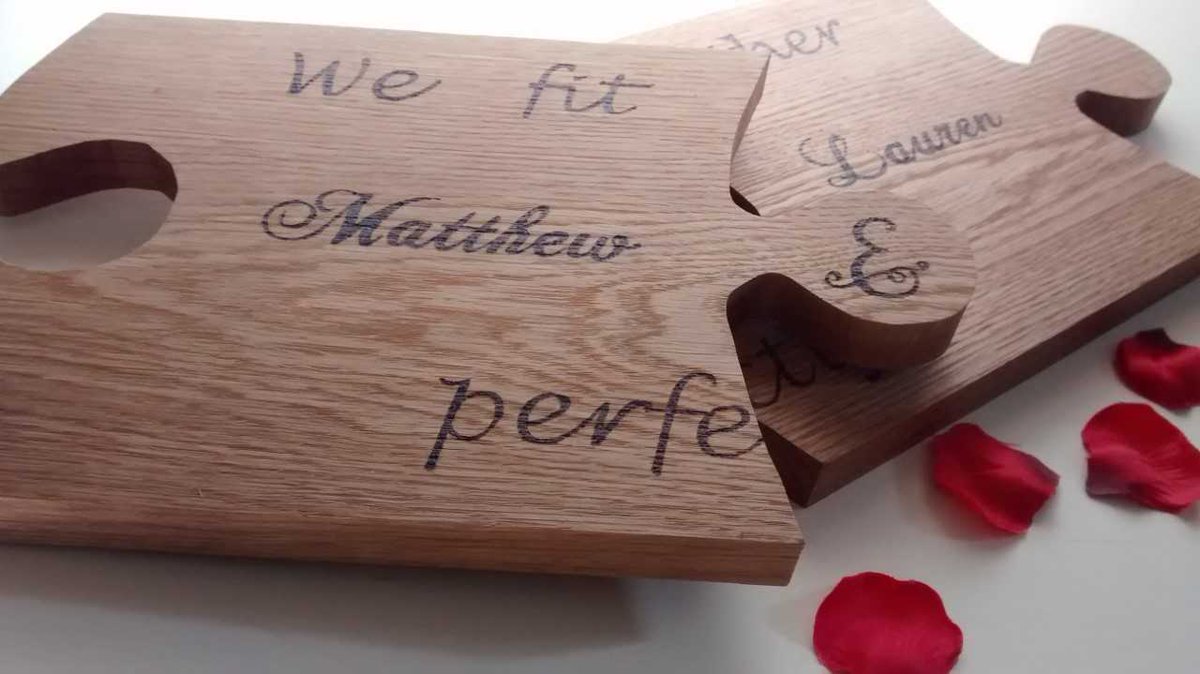 We fit
Matthew &
perfe
ther
Lauren
ctly